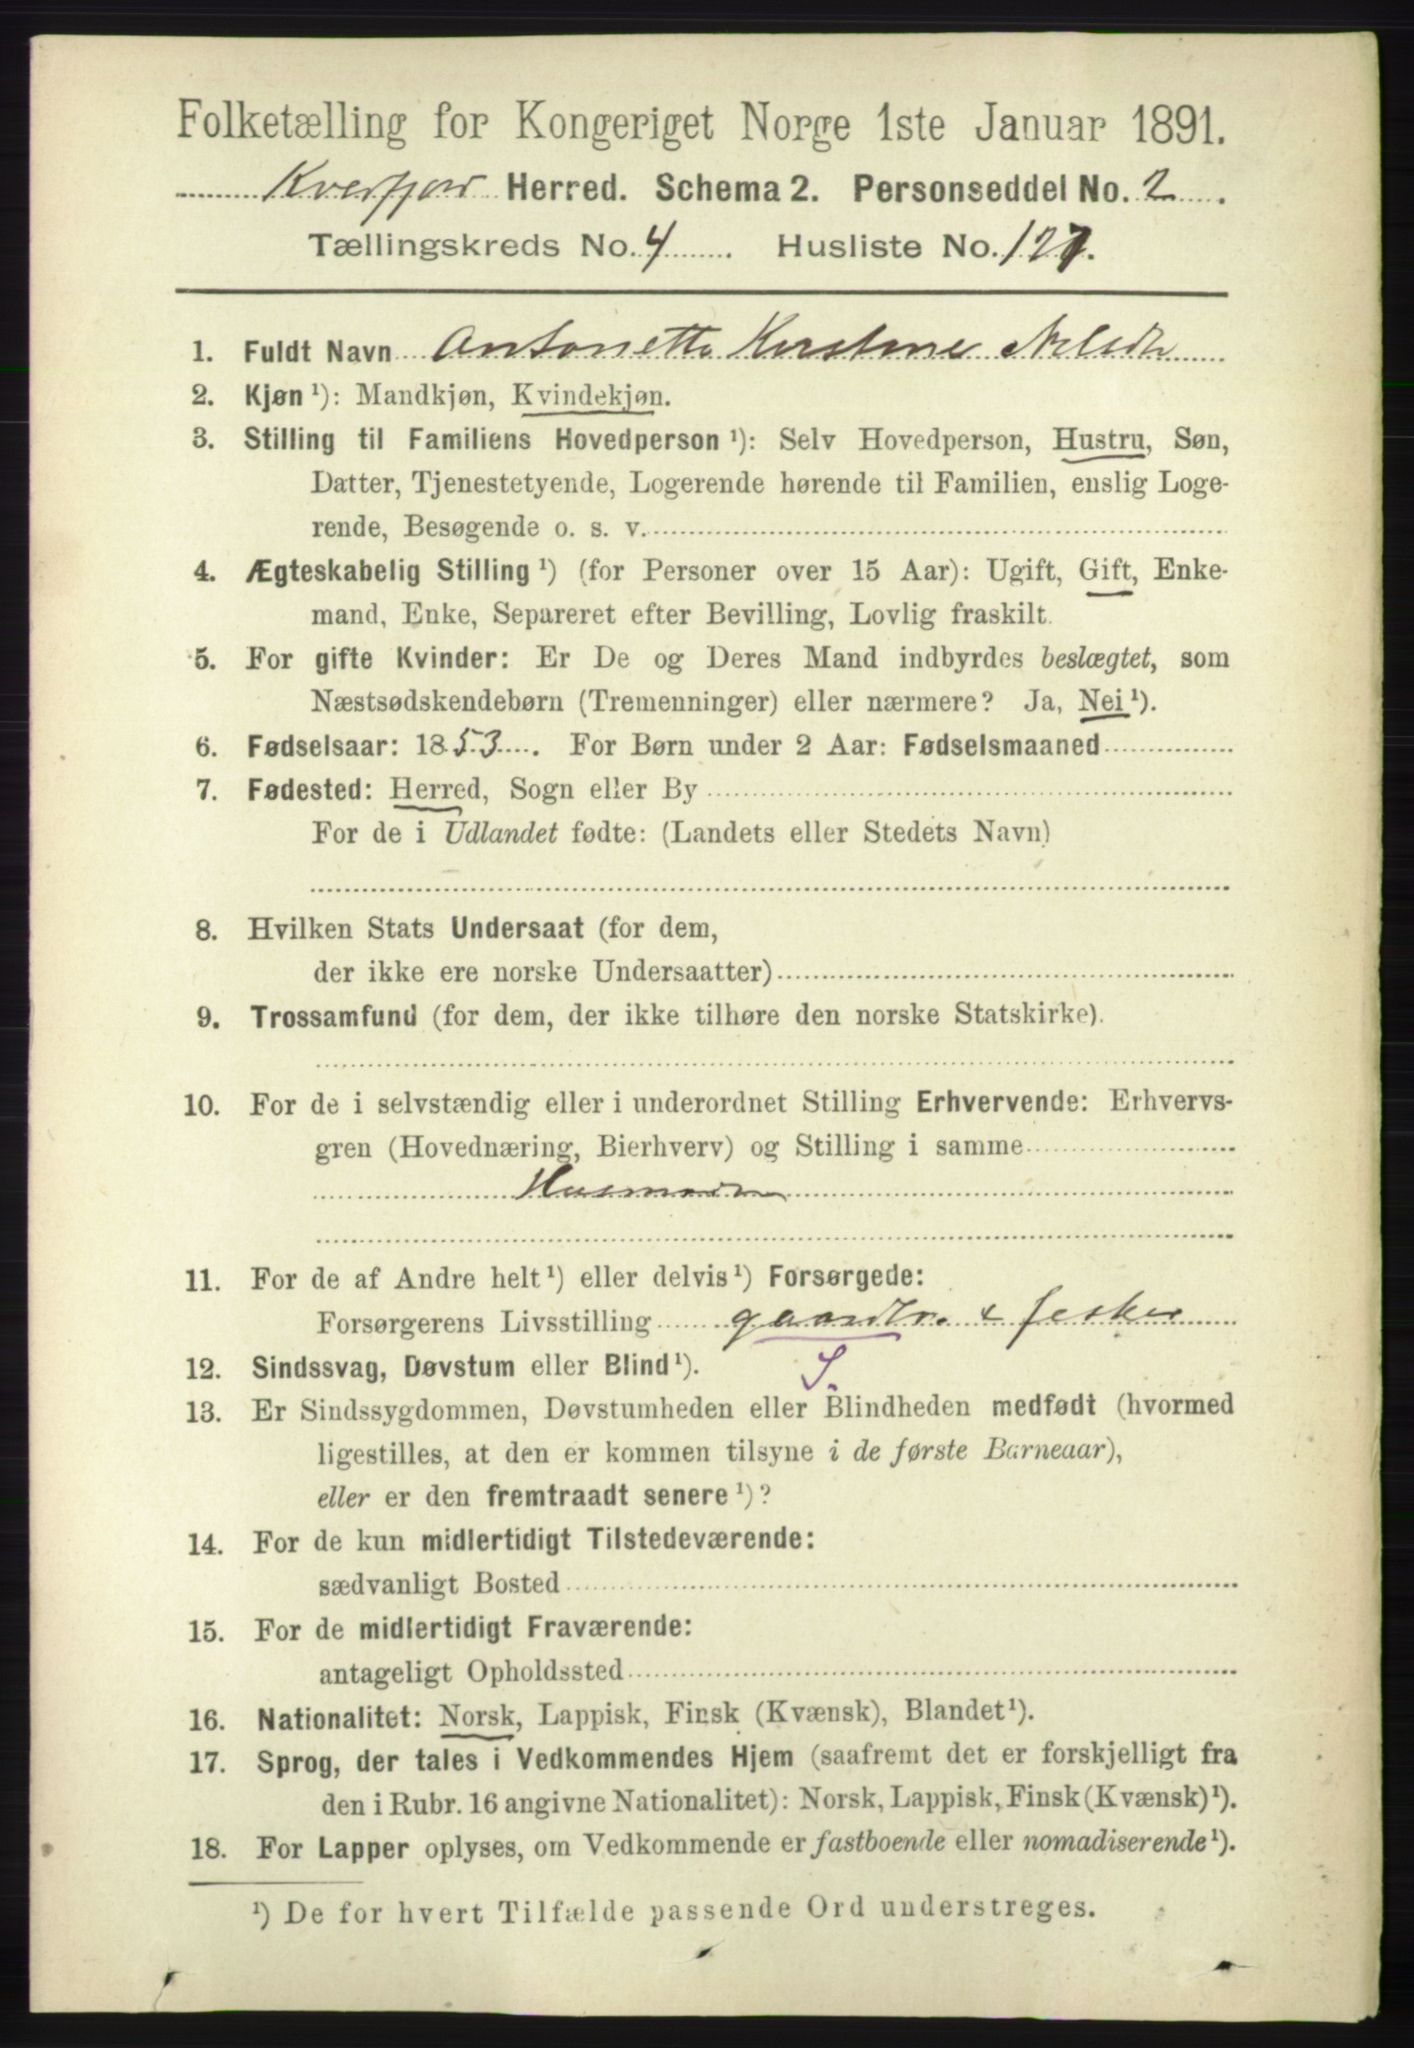 Folketælling for Kongeriget Norge 1ste Januar 1891.
Kvæfjord Herred. Schema 2. Personseddel No. 2
Tællingskreds No. 4 Husliste No. 127.
1. Fuldt Navn Antonette Kirstine Nilsdtr
2. Kjøn ¹): Mandkjøn, Kvindekjøn.
3. Stilling til Familiens Hovedperson ¹): Selv Hovedperson, Hustru, Søn,
Datter, Tjenestetyende, Logerende hørende til Familien, enslig Loge-
rende, Besøgende o. s. v.
4. Ægteskabelig Stilling ¹) (for Personer over 15 Aar): Ugift, Gift, Enke-
mand, Enke, Separeret efter Bevilling, Lovlig fraskilt.
5. For gifte Kvinder: Er De og Deres Mand indbyrdes beslægtet, som
Næstsødskendebørn (Tremenninger) eller nærmere? Ja, Nei ¹).
6. Fødselsaar: 1853. For Børn under 2 Aar: Fødselsmaaned
7. Fødested: Herred, Sogn eller By
For de i Udlandet fødte: (Landets eller Stedets Navn)
8. Hvilken Stats Undersaat (for dem,
der ikke ere norske Undersaatter)
9. Trossamfund (for dem, der ikke tilhøre den norske Statskirke).
10. For de i selvstændig eller i underordnet Stilling Erhvervende: Erhvervs-
gren (Hovednæring, Bierhverv) og Stilling i samme
Husmoder
11. For de af Andre helt ¹) eller delvis ¹) Forsørgede:
Forsørgerens Livsstilling gaardbr. + fisker
12. Sindssvag, Døvstum eller Blind ¹). S.
13. Er Sindssygdommen, Døvstumheden eller Blindheden medfødt (hvormed
ligestilles, at den er kommen tilsyne i de første Barneaar),
eller er den fremtraadt senere ¹)?
14. For de kun midlertidigt Tilstedeværende:
sædvanligt Bosted
15. For de midlertidigt Fraværende:
antageligt Opholdssted
16. Nationalitet: Norsk, Lappisk, Finsk (Kvænsk), Blandet ¹).
17. Sprog, der tales i Vedkommendes Hjem (saafremt det er forskjelligt fra
den i Rubr. 16 angivne Nationalitet): Norsk, Lappisk, Finsk (Kvænsk) ¹).
18. For Lapper oplyses, om Vedkommende er fastboende eller nomadiserende ¹).
¹) De for hvert Tilfælde passende Ord understreges.